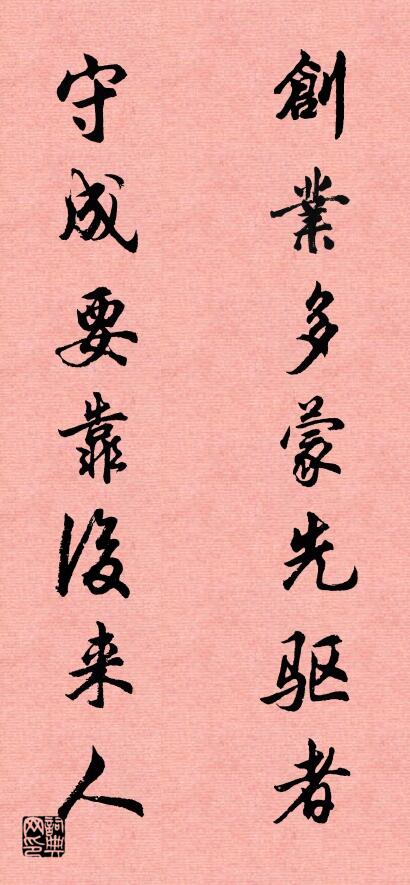 創業多蒙先驱者
守成要靠後来人
詞典网印